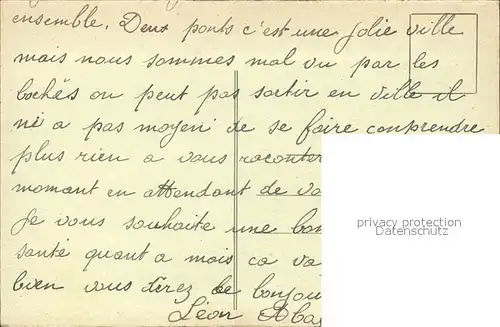 ensemble. Deux ponts c'est une jolie ville
mais nous sommes mal vu par les
bochës on peut pas sortir en ville il
ni a pas moyen de se faire comprendre
plus rien a vous raconter
momant en attendant de
Je vous souhaite une
santé quant a mois ca va
bien vous direz be bonjou
Léon
privacy protection
Datenschutz